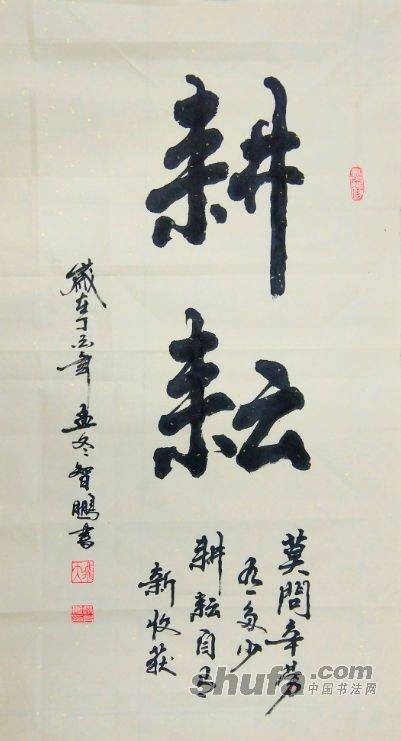 耕耘
莫問辛劳
有多少
耕耘自有
新收获
歲在丁年 孟冬智鵬書
shufa.com
中国书法网